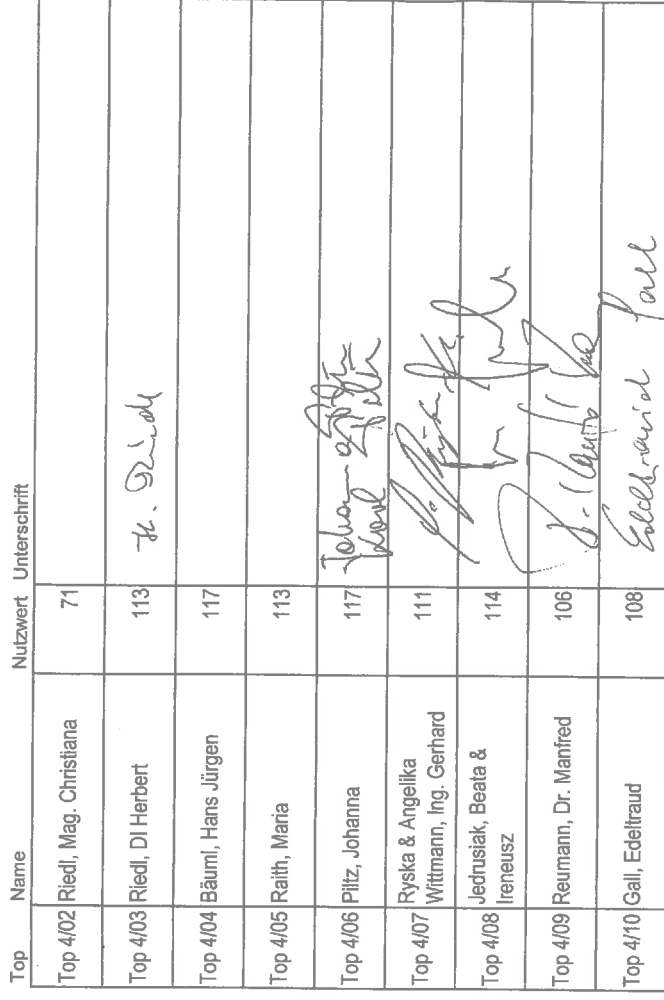 Top Name Nutzwert Unterschrift
Top 4/02 Riedl, Mag. Christiana 71
Top 4/03 Riedl, DI Herbert 113 H. Riedl
Top 4/04 Bäuml, Hans Jürgen 117
Top 4/05 Raith, Maria 113
Top 4/06 Pltz, Johanna 117 Johanna
Karl
Top 4/07 Ryska & Angelika
Wittmann, Ing. Gerhard 111
Top 4/08 Jedrusiak, Beata &
Ireneusz 114
Top 4/09 Reumann, Dr. Manfred 106
Top 4/10 Gall, Edeltraud 108 Edeltraud Gall